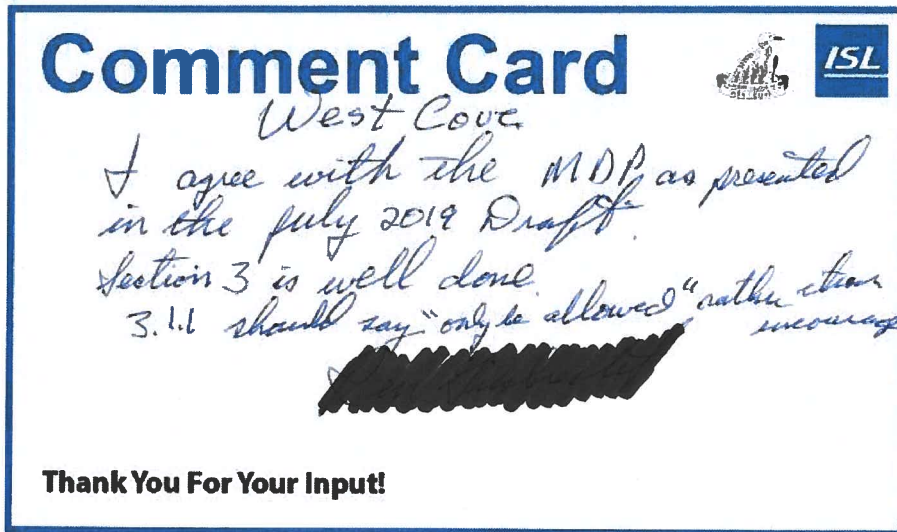 Comment Card
ISL
West Cove
I agree with the MDP as presented
in the July 2019 Draft.
Section 3 is well done.
3.1.1 should say "only be allowed" rather than
encourage
Thank You For Your Input!